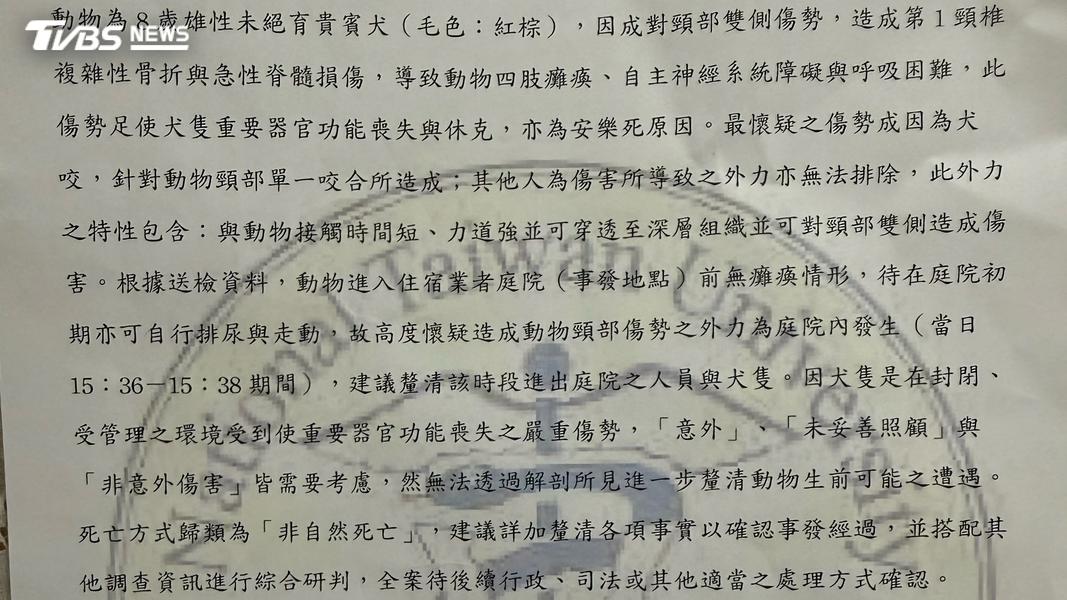 動物為8歲雄性未絕育貴賓犬（毛色：紅棕），因成對頸部雙側傷勢，造成第1頸椎
TVBS NEWS
複雜性骨折與急性脊髓損傷，導致動物四肢癱瘓、自主神經系統障礙與呼吸困難，此
傷勢足使犬隻重要器官功能喪失與休克，亦為安樂死原因。最懷疑之傷勢成因為犬
咬，針對動物頸部單一咬合所造成；其他人為傷害所導致之外力亦無法排除，此外力
之特性包含：與動物接觸時間短、力道強並可穿透至深層組織並可對頸部雙側造成傷
害。根據送檢資料，動物進入住宿業者庭院（事發地點）前無癱瘓情形，待在庭院初
期亦可自行排尿與走動，故高度懷疑造成動物頸部傷勢之外力為庭院內發生（當日
15：36－15：38期間），建議釐清該時段進出庭院之人員與犬隻。因犬隻是在封閉、
受管理之環境受到使重要器官功能喪失之嚴重傷勢，「意外」、「未妥善照顧」與
「非意外傷害」皆需要考慮，然無法透過解剖所見進一步釐清動物生前可能之遭遇。
死亡方式歸類為「非自然死亡」，建議詳加釐清各項事實以確認事發經過，並搭配其
他調查資訊進行綜合研判，全案待後續行政、司法或其他適當之處理方式確認。
National Taiwan University